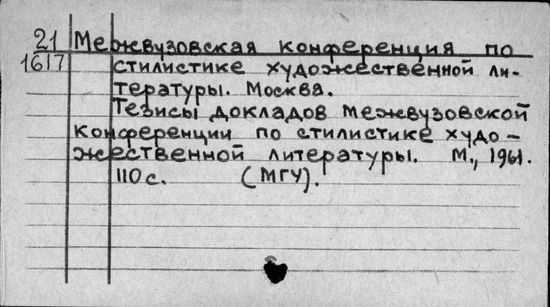 21 Межвузовская конференция по
1617 стилистике художественной ли-
тературы. Москва.
Тезисы докладов межвузовской
конференции по стилистике худо-
жественной литературы. М., 1961.
110 с. (МГУ).